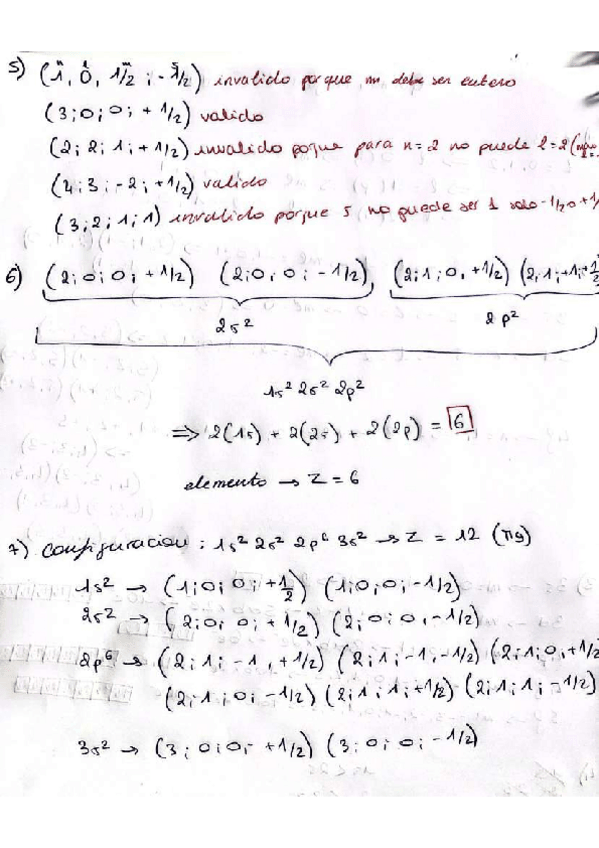 n l m s
5) (1, 0, 1/2 ; -1/2) invalido porque m debe ser entero
(3;0;0; +1/2) valido
(2; 2; 1; +1/2) invalido poque para n=2 no puede l=2
(4; 3; -2; +1/2) valido
(3; 2; 1; 1) invalido porque s no puede ser 1 solo -1/2 o +1/
6) (2; 0; 0; +1/2) (2; 0, 0; -1/2), (2; 1; 0, +1/2) (2, 1; +1; +1/2
2s² 2p²
1s² 2s² 2p²
⇒ 2(1s) + 2(2s) + 2(2p) = 6
elemento → Z = 6
7) configuracion : 1s² 2s² 2p⁶ 3s² → Z = 12 (Mg)
1s² → (1;0;0; +1/2) (1;0;0; -1/2)
2s² → (2;0; 0; +1/2) (2;0; 0, -1/2)
2p⁶ → (2; 1; -1, +1/2) (2; 1; -1; -1/2) (2; 1; 0, +1/2
(2, 1; 0; -1/2) (2; 1; 1; +1/2) (2; 1; 1; -1/2)
3s² → (3; 0; 0; +1/2) (3; 0; 0; -1/2)